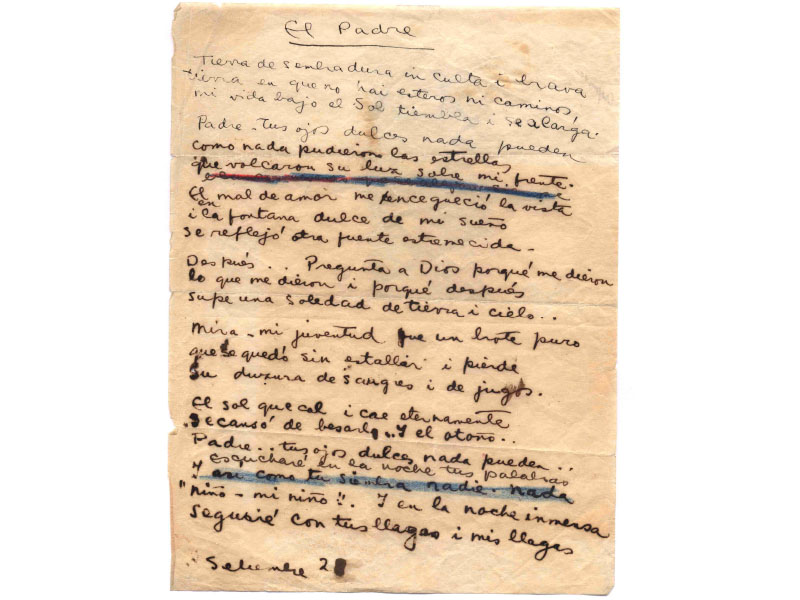 El Padre
Tierra de sembradura inculta i brava
tierra en que no hai esteros ni caminos,
mi vida bajo el Sol tiembla i se alarga.
Padre - tus ojos dulces nada pueden
como nada pudieron las estrellas
que volcaron su luz sobre mi frente.
El mal de amor me encegueció la vista
en
i la fontana dulce de mi sueño
se reflejó otra fuente estremecida -
Después.. Pregunta a Dios porqué me dieron
lo que me dieron i porqué después
supe una soledad de tierra i cielo..
Mira - mi juventud fue un brote puro
que se quedó sin estallar i pierde
su dulzura de sangres i de jugos.
El sol que cae i cae eternamente
se cansó de besarla.. Y el otoño..
Padre.. tus ojos dulces nada pueden..
escucharé en la noche tus palabras
"niño - mi niño". Y en la noche inmensa
seguiré con tus llagas i mis llagas
Setiembre 2